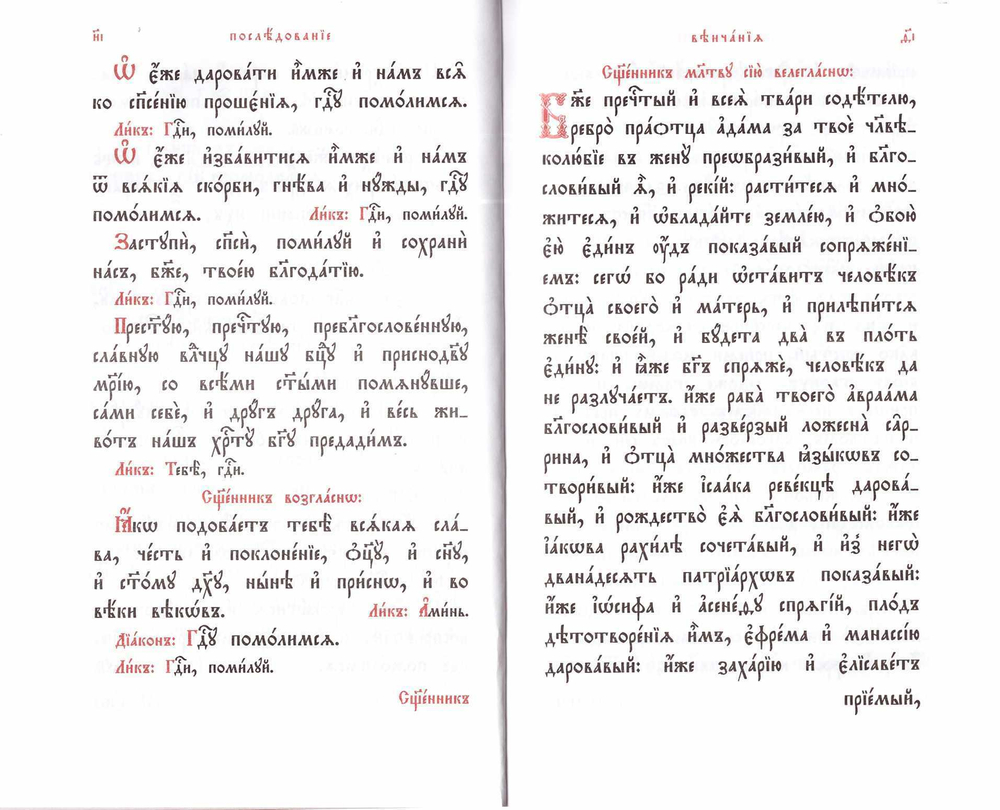 и҃і
послѣ́дованїе
Ѽ є҆́же дарова́ти и҆̀мже и҆ на́мъ всѧ̑
ко сп҃се́нїю прошє́нїѧ, гдⷭ҇ꙋ помо́лимсѧ.
Ли́къ: Гдⷭ҇и, поми́лꙋй.
Ѽ є҆́же и҆зба́витисѧ и҆̀мже и҆ на́мъ
ѿ всѧ́кїѧ ско́рби, гнѣ́ва и҆ нꙋ́жды, гдⷭ҇ꙋ
помо́лимсѧ. Ли́къ: Гдⷭ҇и, поми́лꙋй.
Застꙋпѝ, сп҃сѝ, поми́лꙋй и҆ сохранѝ
на́съ, бж҃е, твое́ю блг҃ода́тїю.
Ли́къ: Гдⷭ҇и, поми́лꙋй.
Прест҃ꙋ́ю, пречⷭ҇тꙋю, пребл҃гослове́ннꙋю,
сла́внꙋю влⷣчцꙋ на́шꙋ бцⷣꙋ и҆ приснодв҃ꙋ
мр҃і́ю, со всѣ́ми ст҃ы́ми помѧнꙋ́вше,
са́ми себѐ, и҆ дрꙋ́гъ дрꙋ́га, и҆ ве́сь жи_
во́тъ на́шъ хрⷭ҇тꙋ̀ бг҃ꙋ предади́мъ.
Ли́къ: Тебѣ̀, гдⷭ҇и.
Сщ҃е́нникъ возгла́снѡ:
Ꙗ҆́кѡ подоба́етъ тебѣ̀ всѧ́каѧ сла́_
ва, че́сть и҆ поклоне́нїе, ѻ҆ц҃ꙋ̀, и҆ сн҃ꙋ,
и҆ ст҃о́мꙋ дх҃ꙋ, ны́нѣ и҆ при́снѡ, и҆ во
вѣ́ки вѣкѡ́въ. Ли́къ: А҆ми́нь.
Дїа́конъ: Гдⷭ҇ꙋ помо́лимсѧ.
Ли́къ: Гдⷭ҇и, поми́лꙋй.
Сщ҃е́нникъ
вѣнча́нїѧ
ѳ҃і
Сщ҃е́нникъ мл҃твꙋ сїю̀ велегла́снѡ:
Бж҃е пречⷭ҇тый и҆ всеѧ̀ тва́ри содѣ́телю,
ребро̀ пра́ѻтца а҆да́ма за твоѐ чл҃вѣ_
колю́бїе въ женꙋ̀ преѡбрази́вый, и҆ блг҃о_
слови́вый ѧ҆̀, и҆ реки́й: расти́тесѧ и҆ мно́_
житесѧ, и҆ ѡ҆блада́йте земле́ю, и҆ ѻ҆бою̀
є҆ю̀ є҆ди́нъ ᲂу҆́дъ показа́вый сопрѧже́нї_
емъ: сегѡ́ бо ра́ди ѡ҆ста́витъ человѣ́къ
ѻ҆тца̀ своего̀ и҆ ма́терь, и҆ прилѣпи́тсѧ
женѣ̀ свое́й, и҆ бꙋ́дета два̀ въ пло́ть
є҆ди́нꙋ: и҆ ꙗ҆̀же бг҃ъ спрѧжѐ, человѣ́къ да
не разлꙋча́етъ. и҆́же раба̀ твоего̀ а҆враа́ма
блг҃ослови́вый и҆ разве́рзый ложесна̀ са́р_
рина, и҆ ѻ҆тца̀ мно́жества ꙗ҆зы́кѡвъ со_
твори́вый: и҆́же і҆саа́ка реве́кцѣ дарова́_
вый, и҆ рождество̀ є҆ѧ̀ блг҃ослови́вый: и҆́же
і҆а́кѡва рахи́лѣ сочета́вый, и҆ и҆з̾ негѡ̀
двана́десѧть патрїа́рхѡвъ показа́вый:
и҆́же і҆ѡ́сифа и҆ а҆сене́ѳꙋ спрѧгі́й, пло́дъ
дѣтотворе́нїѧ и҆̀мъ, є҆фре́ма и҆ манассі́ю
дарова́вый: и҆́же заха́рїю и҆ є҆лїсаве́тъ
прїе́мый,